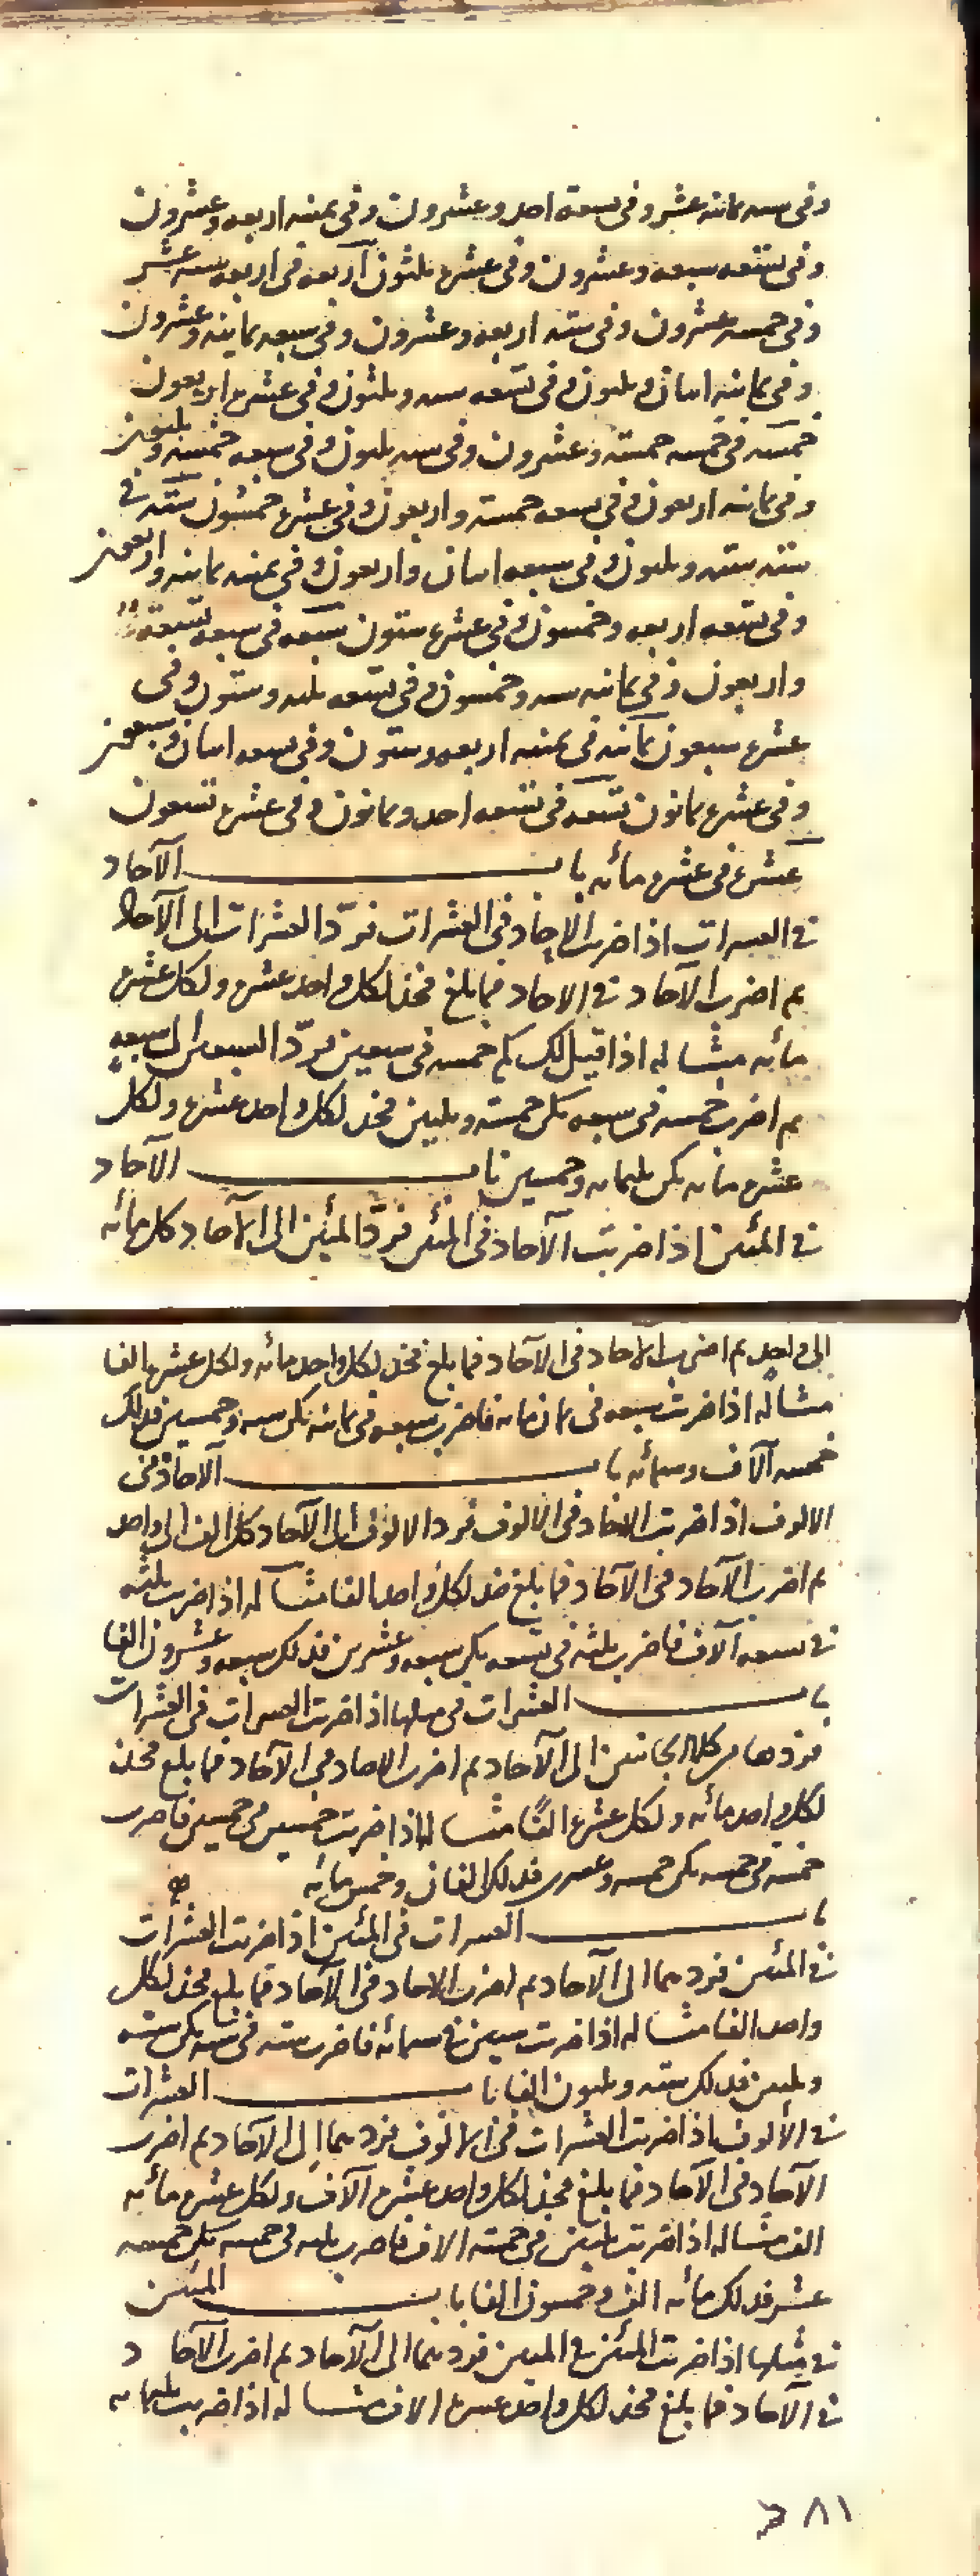 وفى سته ثمانيه عشر وفى سبعة احد وعشرون وفى ثمنيه اربعه وعشرون
وفى تسعه سبعه وعشرون وفى عشره ثلثون اربعه فى اربعه سته عشر
وفى خمسه عشرون وفى سته اربعه وعشرون وفى سبعه ثمانيه وعشرون
وفى ثمانيه اثنان وثلثون وفى تسعه سته وثلثون وفى عشره اربعون
خمسه فى خمسه خمسة وعشرون وفى سته ثلثون وفى سبعه خمسه وثلثين
وفى ثمانيه اربعون وفى تسعه خمسة واربعون وفى عشره خمسون سته فى
سته سته وثلثون وفى سبعه اثنان واربعون وفى ثمنيه ثمانيه واربعين
وفى تسعه اربعه وخمسون وفى عشره ستون سبعه فى سبعه تسعة
واربعون وفى ثمانيه سته وخمسون وفى تسعه ثلثه وستون وفى
عشره سبعون ثمانيه فى ثمنيه اربعه وستون وفى تسعه اثنان وسبعين
وفى عشره ثمانون تسعه فى تسعه احد وثمانون وفى عشره تسعون
عشره فى عشره مائه باب الآحاد
فى العشرات اذا ضربت الاحاد فى العشرات فردّ العشرات الى الآحاد
ثم اضرب الآحاد فى الاحاد فما بلغ فخذ لكل واحد عشره ولكل عشره
مائه مثاله اذا قيل لك كم خمسه فى سبعين فردّ السبعين الى سبعه
ثم اضرب خمسه فى سبعه تكن خمسة وثلثين فخذ لكل واحد عشره ولكل
عشره مائه تكن ثلثمائه وخمسين باب الآحاد
فى المئين اذا ضربت الآحاد فى المئين فردّ المئين الى الآحاد كل مائه
الى واحد ثم اضرب الاحاد فى الآحاد فما بلغ فخذ لكل واحد مائه ولكل عشره الفا
مثاله اذا ضربت سبعه فى ثمان مائه فاضرب سبعه فى ثمانيه تكن سته وخمسين فذلك
خمسه آلاف وستمائه باب الآحاد فى
الالوف اذا ضربت الاحاد فى الالوف فرد الالوف الى الآحاد كل الف الى واحد
ثم اضرب الآحاد فى الآحاد فما بلغ فخذ لكل واحد الفا مثاله اذا ضربت ثلثه
فى تسعه آلاف فاضرب ثلثه فى تسعه تكن سبعه وعشرين فذلك سبعه وعشرون الفا
باب العشرات فى مثلها اذا ضربت العشرات فى العشرات
فردها من كلا الجانبين الى الآحاد ثم اضرب الاحاد فى الآحاد فما بلغ فخذ
لكل واحد مائه ولكل عشره الفًا مثاله اذا ضربت خمسين فى خمسين فاضرب
خمسه فى خمسه تكن خمسه وعشرين فذلك الفان وخمس مائه
باب العشرات فى المئين اذا ضربت العشرات
فى المئين فردهما الى الآحاد ثم اضرب الاحاد فى الآحاد فما بلغ فخذ لكل
واحد الفا مثاله اذا ضربت ستين فى ستمائه فاضرب سته فى سته تكن سته
وثلثين فذلك سته وثلثون الفا باب العشرات
فى الألوف اذا ضربت العشرات فى الالوف فردهما الى الآحاد ثم اضرب
الآحاد فى الآحاد فما بلغ فخذ لكل واحد عشره آلاف ولكل عشره مائه
الف مثاله اذا ضربت ثلثين فى خمسة الاف فاضرب ثلثه فى خمسه تكن خمسه
عشر فذلك مائه الف وخمسون الفا باب المئين
فى مثلها اذا ضربت المئين فى المئين فردهما الى الآحاد ثم اضرب الآحاد
فى الآحاد فما بلغ فخذ لكل واحد عشره الاف مثاله اذا ضربت ثلثمائه
٨١